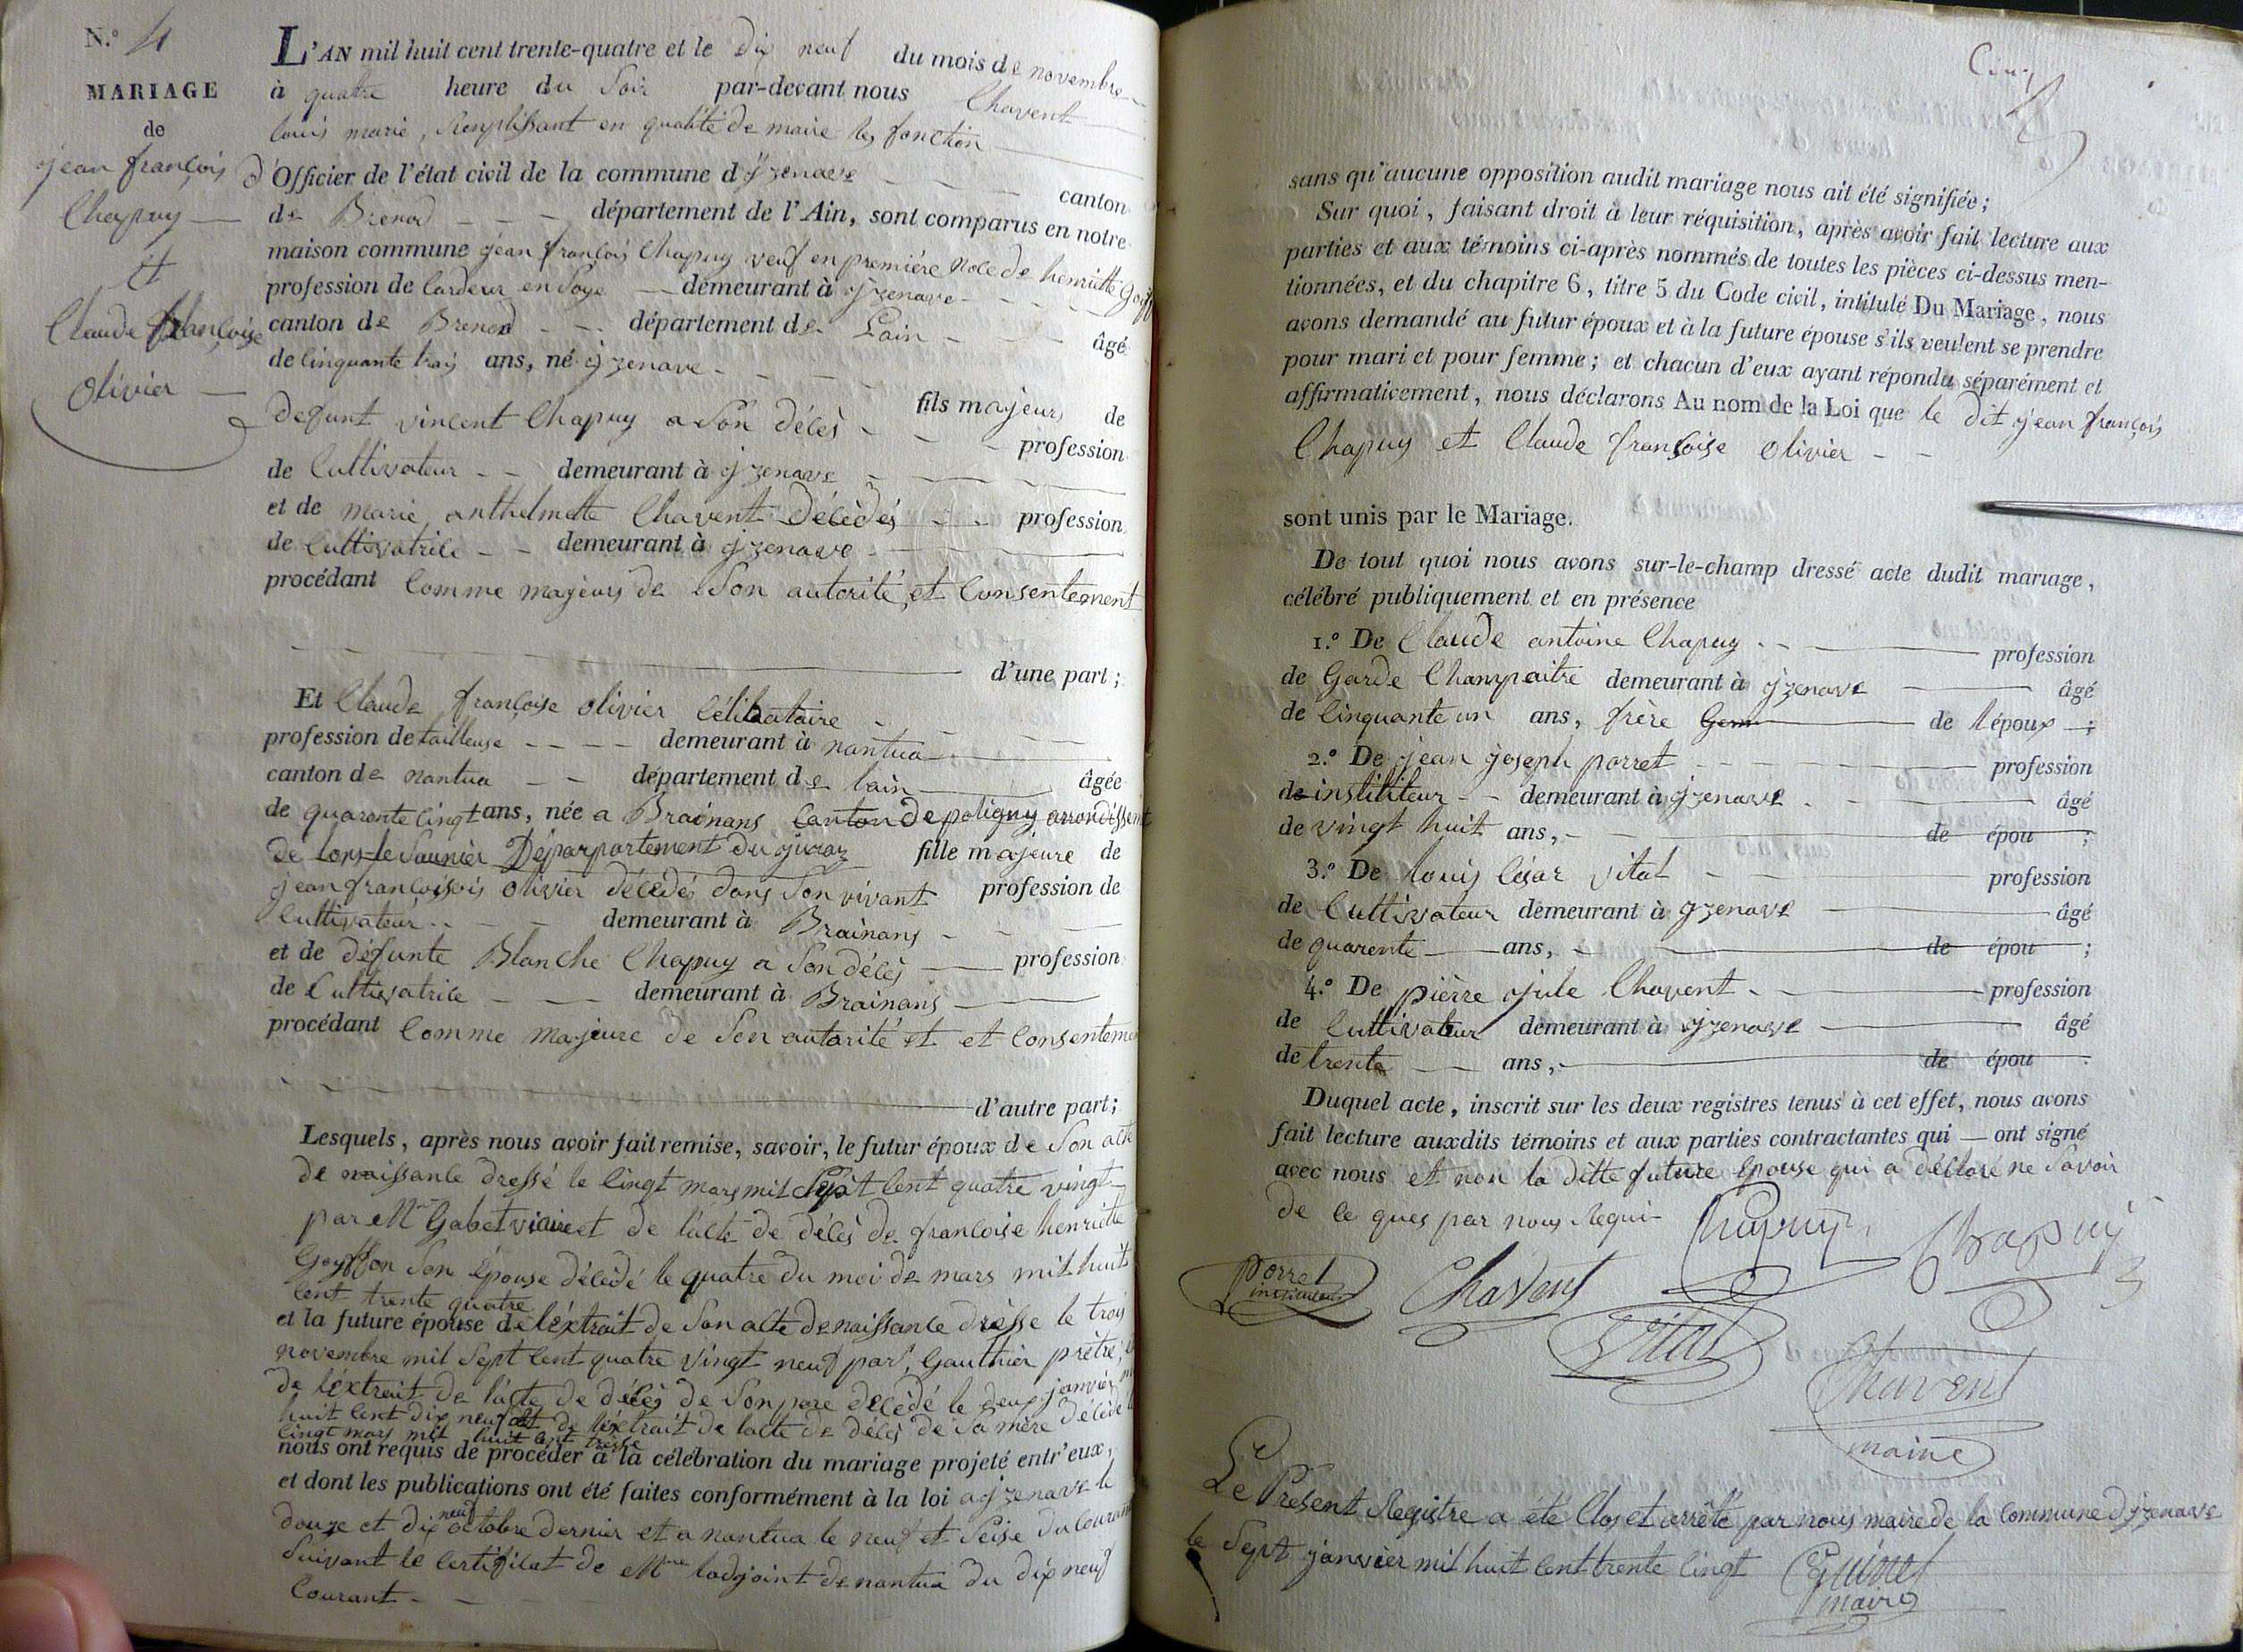 N.° 4
MARIAGE
de
jean françois
Chapuy
et
Claude françoise
olivier
L'AN mil huit cent trente-quatre et le dix neuf du mois de novembre
à quatre heure du Soir par-devant nous Chavent
louis marie, Remplissant en qualité de maire les fonction
d'Officier de l'état civil de la commune d'jzenave canton
de Brenod département de l'Ain, sont comparus en notre
maison commune jean françois Chapuy veuf en première Noce de henriette goyff
profession de Cardeur en Soye demeurant à jzenave
canton de Brenod département de Lain âgé
de Cinquante trois ans, né jzenave
fils majeur de
defunt vincent Chapuy a Son décès profession
de Cultivateur demeurant à jzenave
et de marie anthelmette Chavent décédés profession
de Cultivatrice demeurant à jzenave
procédant Comme majeurs de Son autorité, et Consentement
d'une part ;
Et Claude françoise olivier Célibataire
profession de tailleuse demeurant à nantua
canton de nantua département de lain âgée
de quarente cingt ans, née a Brainans Canton de poligny arrondissent
de lons-le Saunier Déparpartement du juraz fille majeure de
jean françoisois olivier décédés dans Son vivant profession de
Cultivateur demeurant à Brainans
et de défunte Blanche Chapuy a Son décès profession
de Cultivatrice demeurant à Brainans
procédant Comme majeure de Son autorité et et Consenteme
d'autre part;
Lesquels, après nous avoir fait remise, savoir, le futur époux de Son acte
de naissance dressé le cingt mars mil Sept Cent quatre vingt
par Mr Gabet vicaire et de l'acte de décès de françoise henriette
Goyffon Son épouse décédé le quatre du moi de mars mil huit
Cent trente quatre
et la future épouse de l'éxtrait de Son acte de naissance dressé le trois
novembre mil Sept Cent quatre vingt neuf par Gauthier prêtre,
de l'éxtrait de l'acte de décès de Son père décédé le deux janvier
huit Cent dix neuf et de l'éxtrait de lacte de décès de Sa mère décédé
cingt mars mil huit Cent treize
nous ont requis de procéder à la célébration du mariage projeté entr'eux,
et dont les publications ont été faites conformément à la loi a jzenave le
douze et dix neuf octobre dernier et a nantua le neuf et Seise du Courant
Suivant le Certificat de Mr ladjoint de nantua du dix neuf
Courant
Cinq
sans qu'aucune opposition audit mariage nous ait été signifiée ;
Sur quoi, faisant droit à leur réquisition, après avoir fait lecture aux
parties et aux témoins ci-après nommés de toutes les pièces ci-dessus men-
tionnées, et du chapitre 6, titre 5 du Code civil, intitulé Du Mariage, nous
avons demandé au futur époux et à la future épouse s'ils veulent se prendre
pour mari et pour femme ; et chacun d'eux ayant répondu séparément et
affirmativement, nous déclarons Au nom de la Loi que le dit jean françois
Chapuy et Claude françoise olivier
sont unis par le Mariage.
De tout quoi nous avons sur-le-champ dressé acte dudit mariage,
célébré publiquement et en présence
1.° De Claude antoine Chapuy profession
de Garde Champaitre demeurant à jzenave âgé
de Cinquante un ans, frère Ger de lépoux ;
2.° De jean joseph porret profession
de instititeur demeurant à jzenave âgé
de vingt huit ans, de épou ;
3.° De louis César vital profession
de Cultivateur demeurant à jzenave âgé
de quarente ans, de épou ;
4.° De pièrre jule Chavent profession
de Cultivateur demeurant à jzenave âgé
de trente ans, de épou .
Duquel acte, inscrit sur les deux registres tenus à cet effet, nous avons
fait lecture auxdits témoins et aux parties contractantes qui ont signé
avec nous et non la ditte future Epouse qui a déclaré ne Savoir
de ce ques par nous Requi
Chapuy Chapuy
porret Chavent
instituteur
Vital
Chavent
maire
Le Présent Registre a été Clos et arrêté par nous maire de la commune d'jzenave
le Sept janvier mil huit Cent trente Cingt
maire